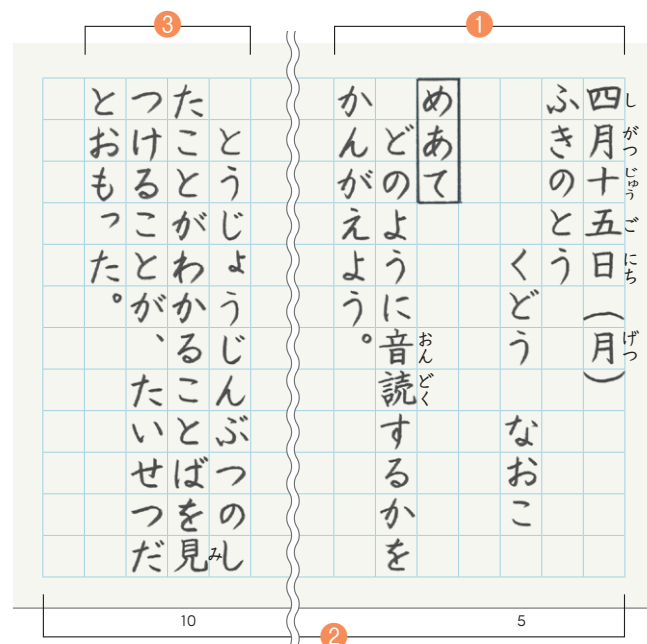 ①
四月十五日（月）
しがつじゅうごにち げつ
ふきのとう
くどう　なおこ
めあて
どのように音読するかを
おんどく
かんがえよう。
③
とうじょうじんぶつのし
たことがわかることばを見
み
つけることが、たいせつだ
とおもった。
5
10
②